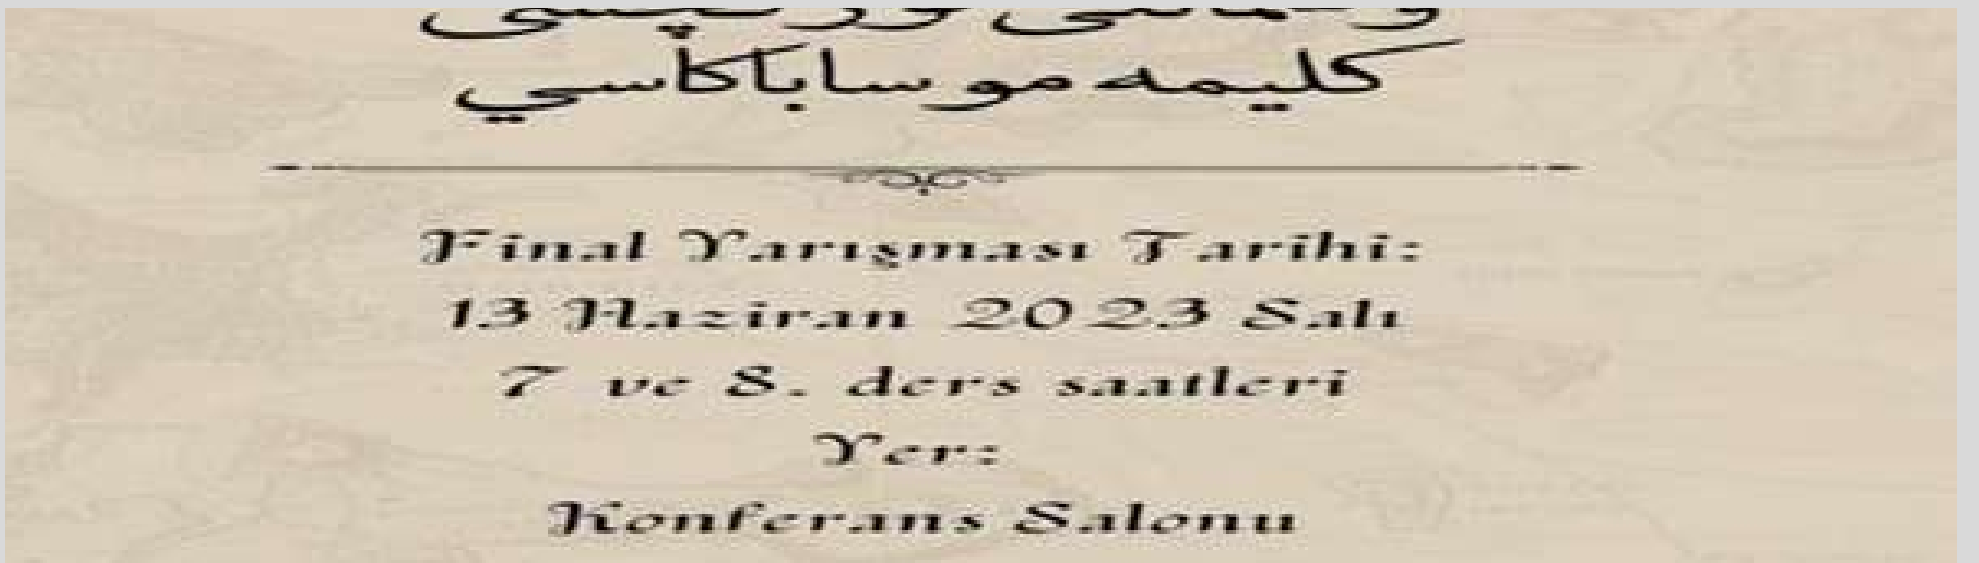 كليمه موساباكاسي
Final Yarışması Tarihi:
13 Haziran 2023 Salı
7 ve 8. ders saatleri
Yer:
Konferans Salonu